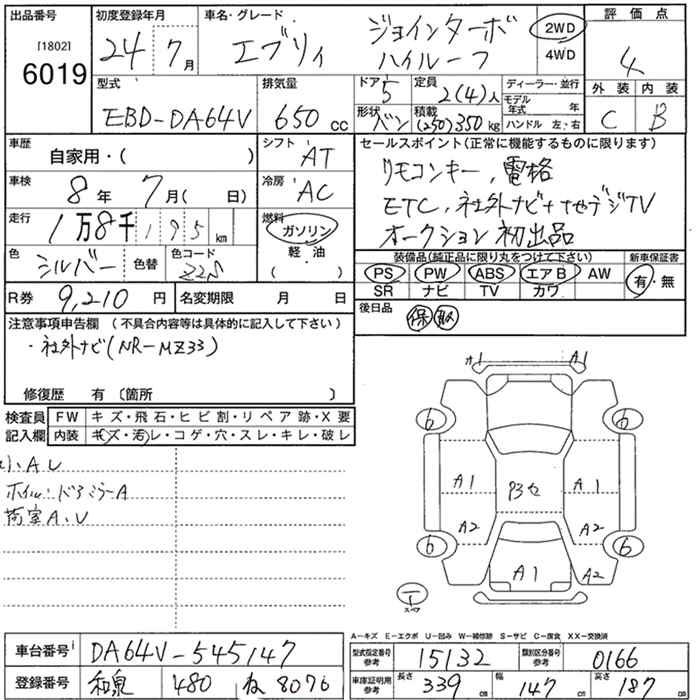 出品番号 初度登録年月 車名・グレード 評価点
[1802]
6019 24年7月 エブリィ ジョインターボ ハイルーフ 2WD 4WD 4
型式 排気量 ドア 定員 ディーラー・並行 外装 内装
EBD-DA64V 650cc 5 2(4)人 モデル年式 年 C B
形状 積載
バン (250)350kg ハンドル 左・右
車歴 シフト セールスポイント(正常に機能するものに限ります)
自家用・( ) AT リモコンキー、電格
車検 冷房
8年7月( 日) AC ETC、社外ナビ+地デジTV
走行 燃料
1万8千195km ガソリン 軽油 ( ) オークション初出品
色 色替 色コード 装備品(純正品に限り丸をつけて下さい) 新車保証書
シルバー Z2S PS PW ABS エアB AW 有・無
SR ナビ TV カワ
R券 9,210円 名変期限 月 日 後日品
保 取
注意事項申告欄 (不具合内容等は具体的に記入して下さい)
・社外ナビ(NR-MZ33)
修復歴 有 〔箇所 〕
検査員記入欄 FW キズ・飛石・ヒビ割・リペア跡・X要
内装 キズ・汚レ・コゲ・穴・スレ・キレ・破レ
A U
ホイル・ドアミラーA
荷室A、U
オ1 A1
6 6
A1 P3セ A1
A2 A2
6 6
A1 A2
スペア
A-キズ E-エクボ U-凹み W-補修跡 S-サビ C-腐食 XX-交換済
車台番号 DA64V-545147 型式指定番号 参考 15132 類別区分番号 参考 0166
登録番号 和泉 480 ね 8076 車庫証明用 参考 長さ 339cm 幅 147cm 高さ 187cm